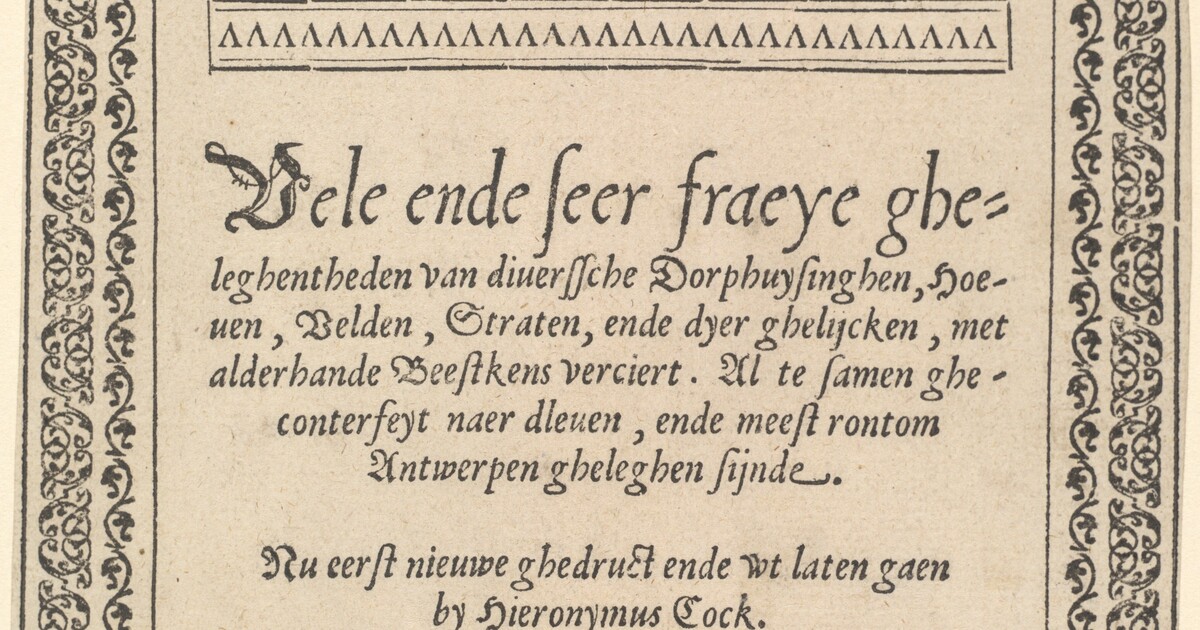 Vele ende ſeer fraeye ghe=
leghentheden van diuerſſche Dorphuyſinghen, Hoe-
uen, Velden, Straten, ende dyer ghelijcken, met
alderhande Beeſtkens verciert. Al te ſamen ghe-
conterfeyt naer dleuen, ende meeſt rontom
Antwerpen gheleghen ſijnde.
Nu eerſt nieuwe ghedruct ende wt laten gaen
by Hieronymus Cock.